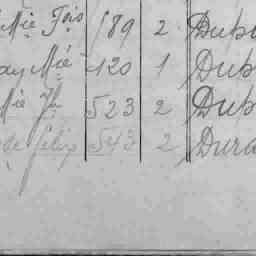 Mie Fois 189 2 Dub
ay Mie 120 1 Dub
Mie Jh 523 2 Dub
de Félix 543 2 Dura